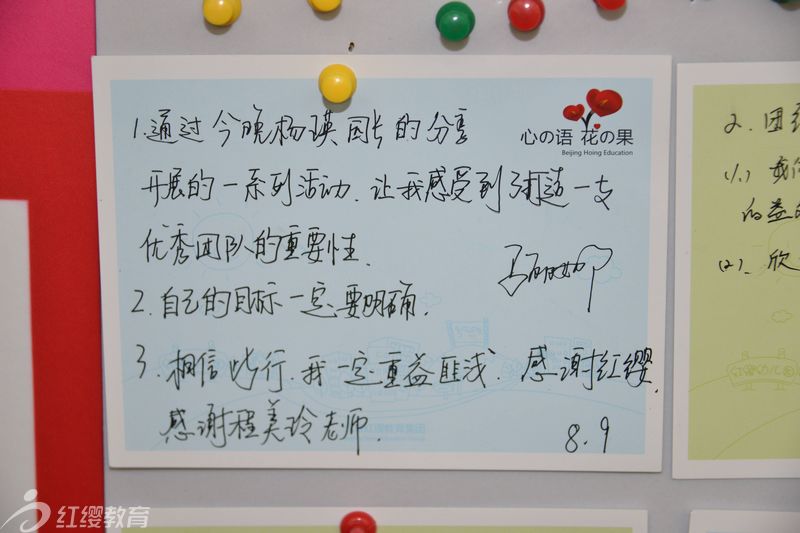 心の语 花の果
Beijing Hoing Education
1.通过今晚杨瑛园长的分享
开展的一系列活动.让我感受到了打造一支
优秀团队的重要性.
2.自己的目标一定要明确.
3.相信此行.我一定重益匪浅.感谢红缨.
感谢程美玲老师.
8.9
2.团
(1.)我
的益
(2).欣
红缨幼儿园
红缨教育集团
红缨教育